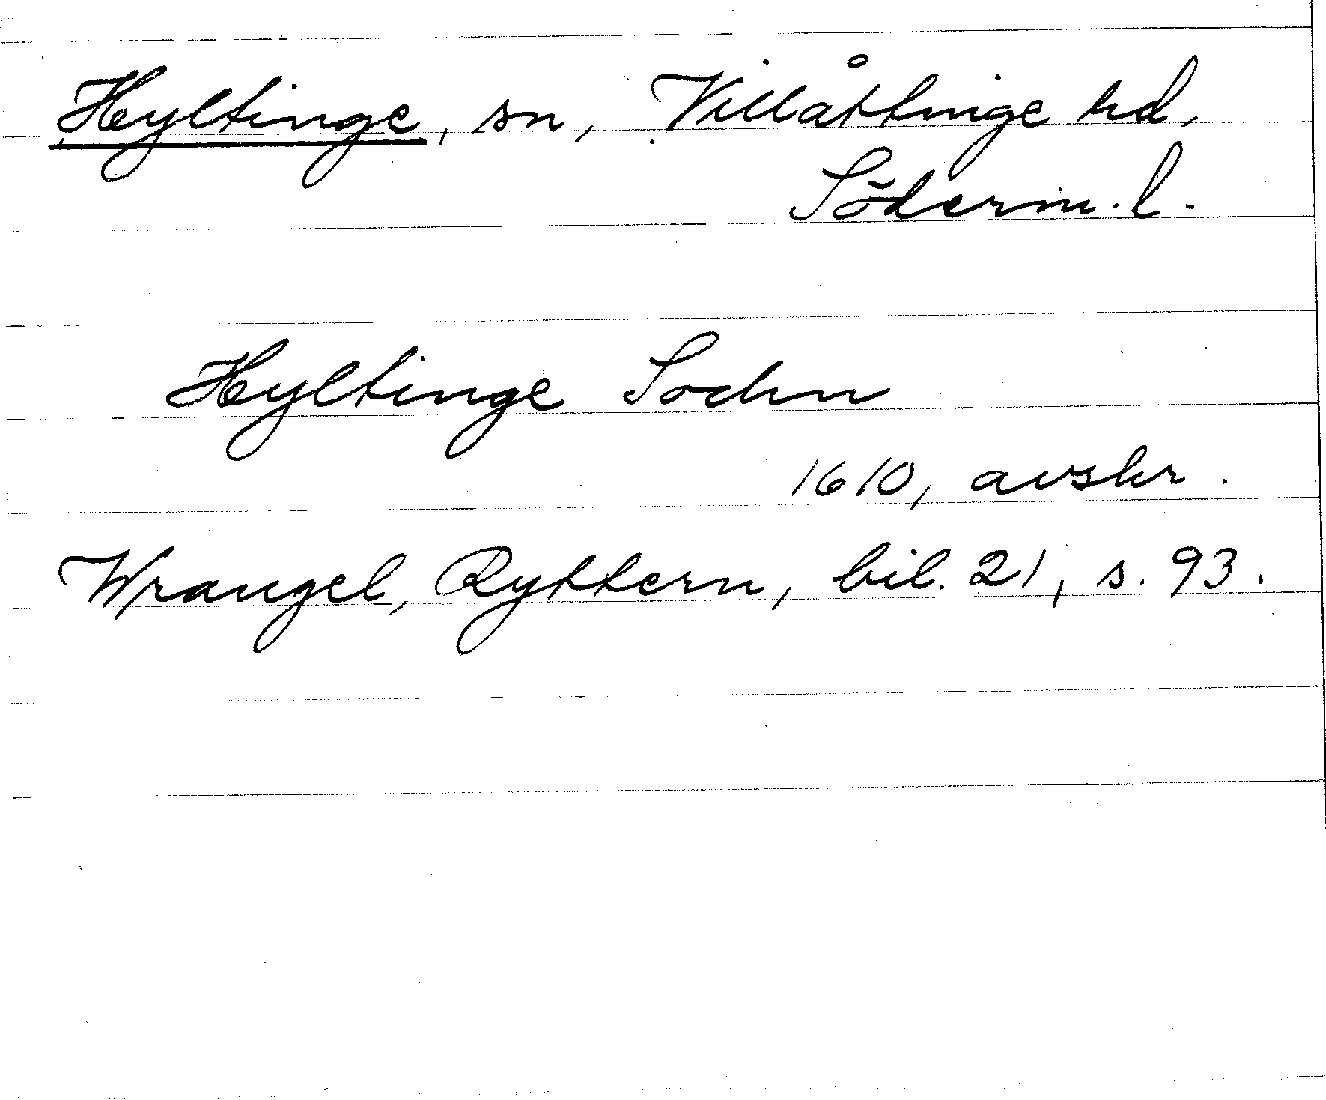 Hyltinge, sn, Villåttinge hd,
Söderm.l.
Hyltinge Sochn
1610, avskr.
Wrangel, Ryttern, bil. 21, s. 93.